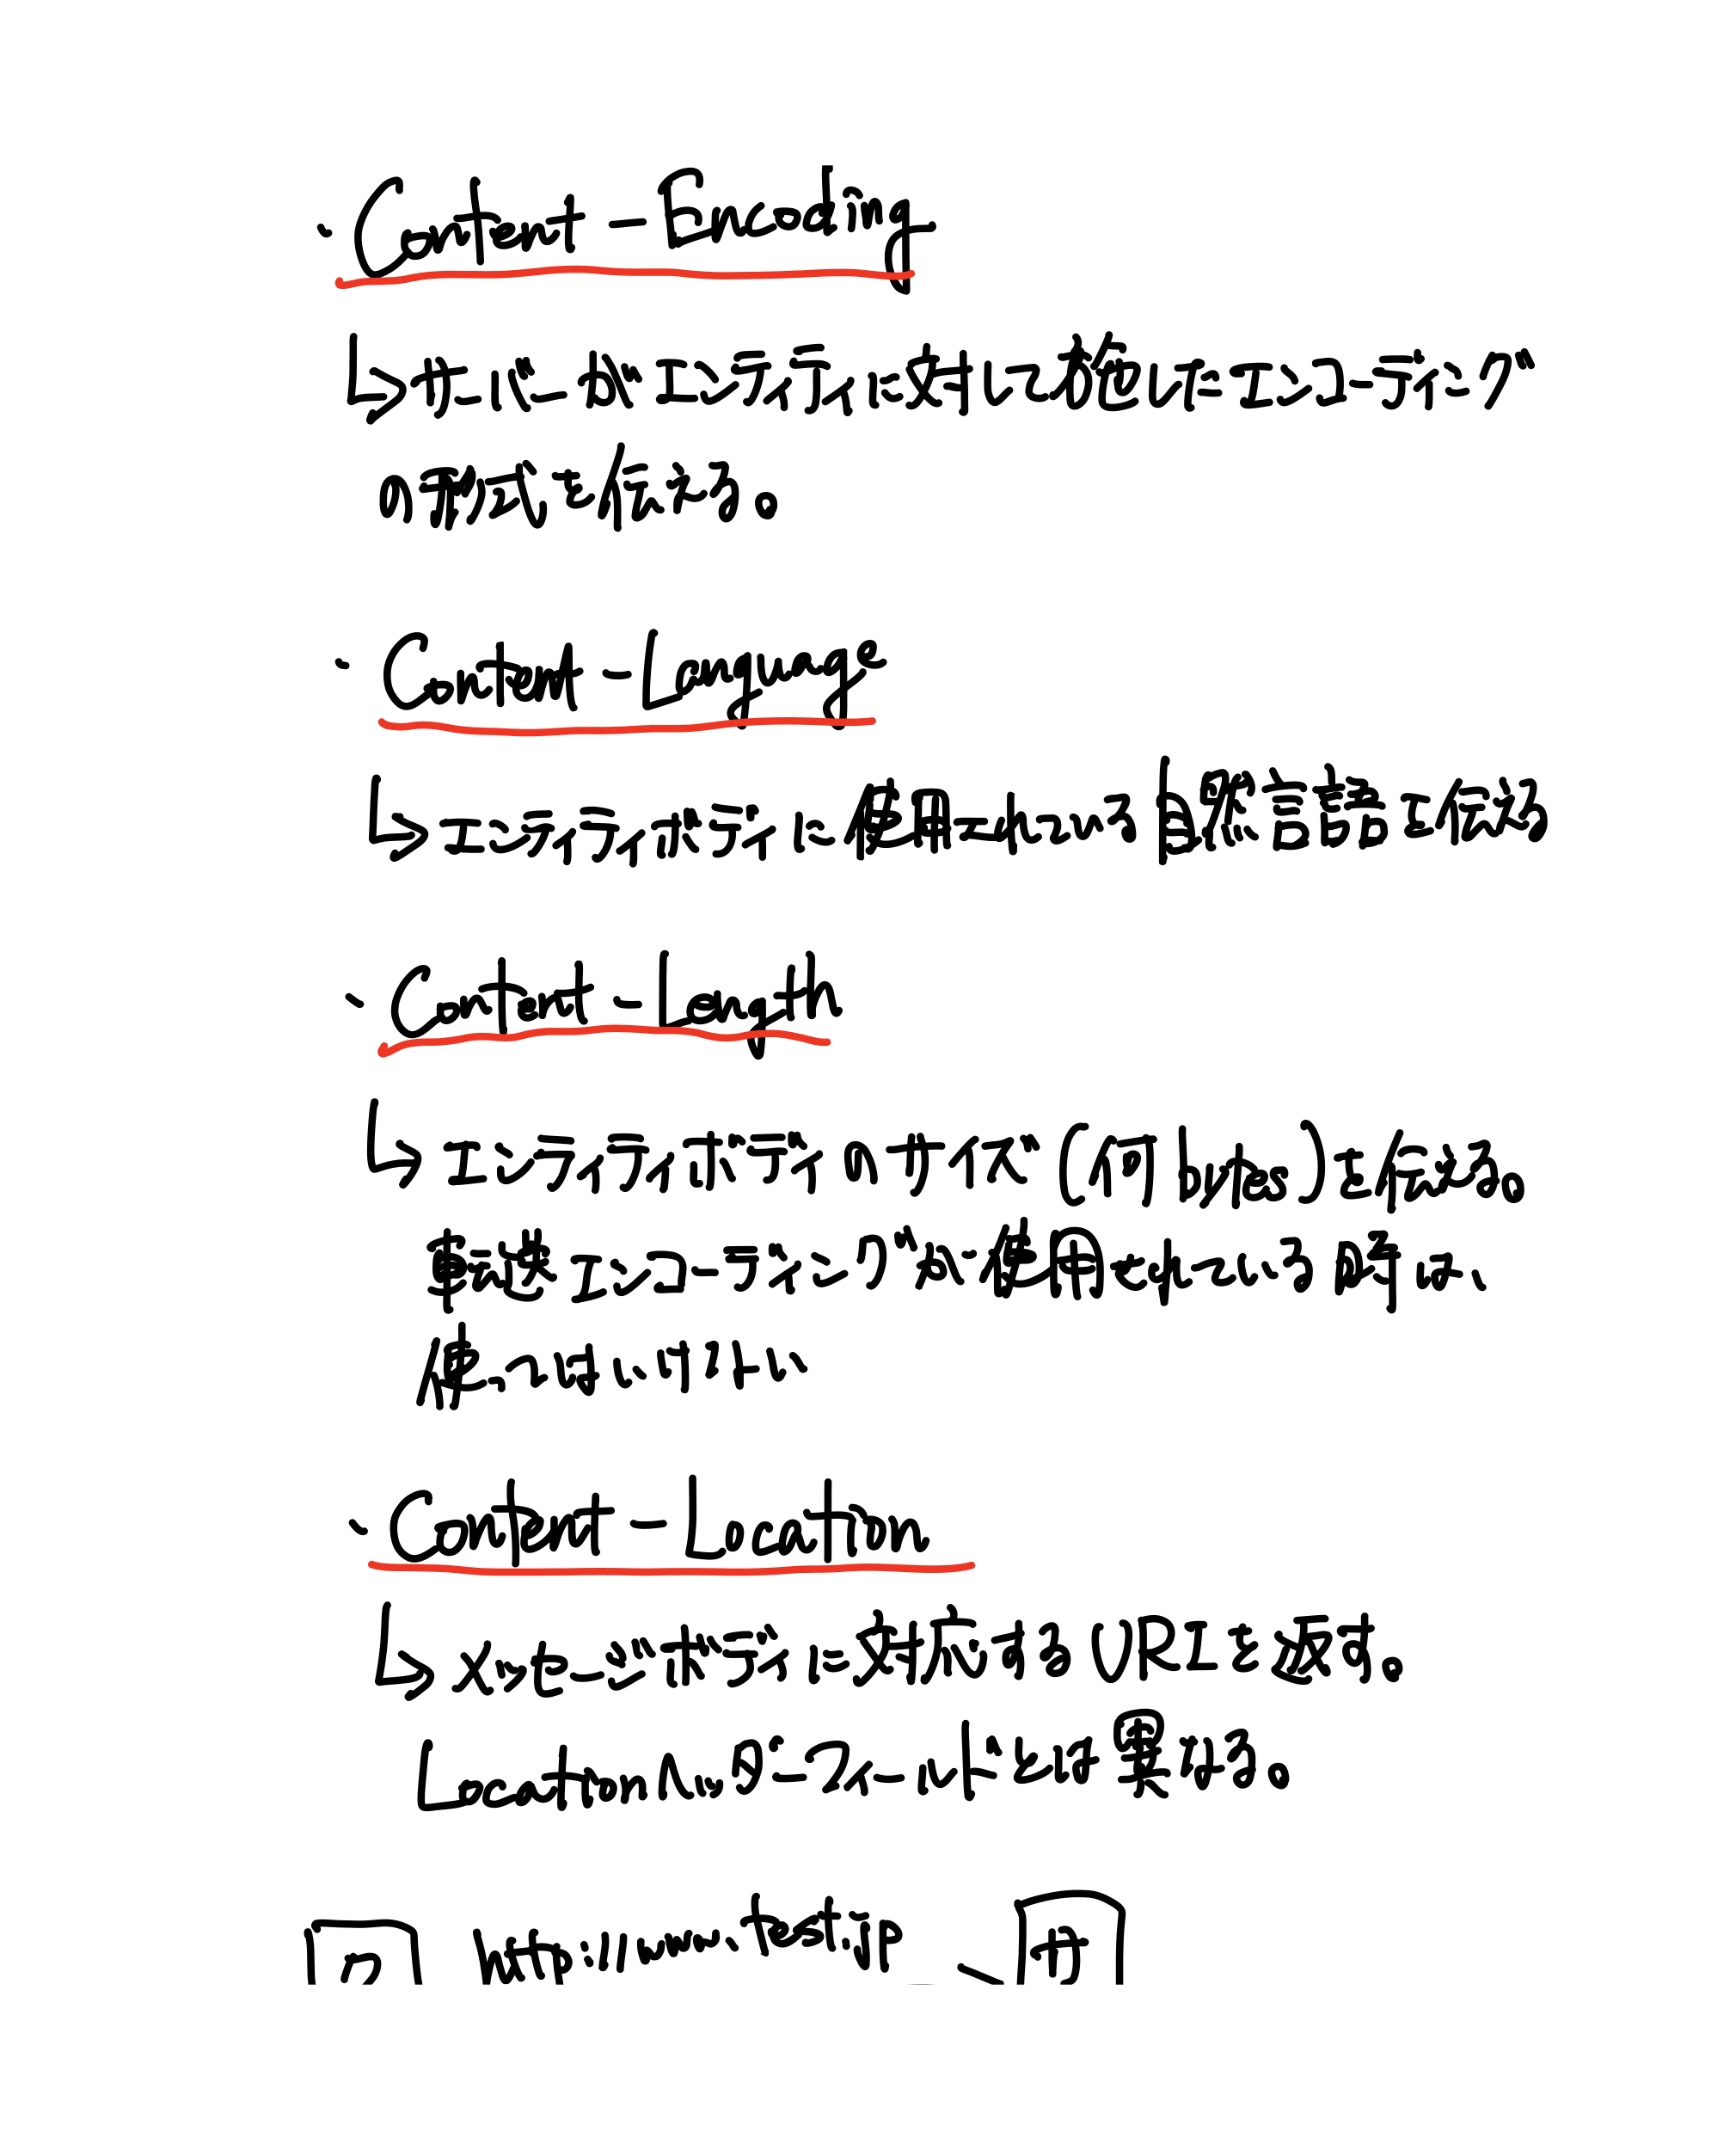 ・Content-Encoding
↳サーバーがエンティティに対して施したエンコーディング
の形式を伝える。
・Content-Language
↳エンティティボディに使用されている自然言語を伝える
・Content-Length
↳エンティティボディのサイズ(何bytes)を伝える。
転送エンコーディングが使用されている時は、
使ってはいけない
・Content-Location
↳メッセージボディに対応するURIを返す。
Locationヘッダーフィールドとは異なる。
http://www.test.jp
サ